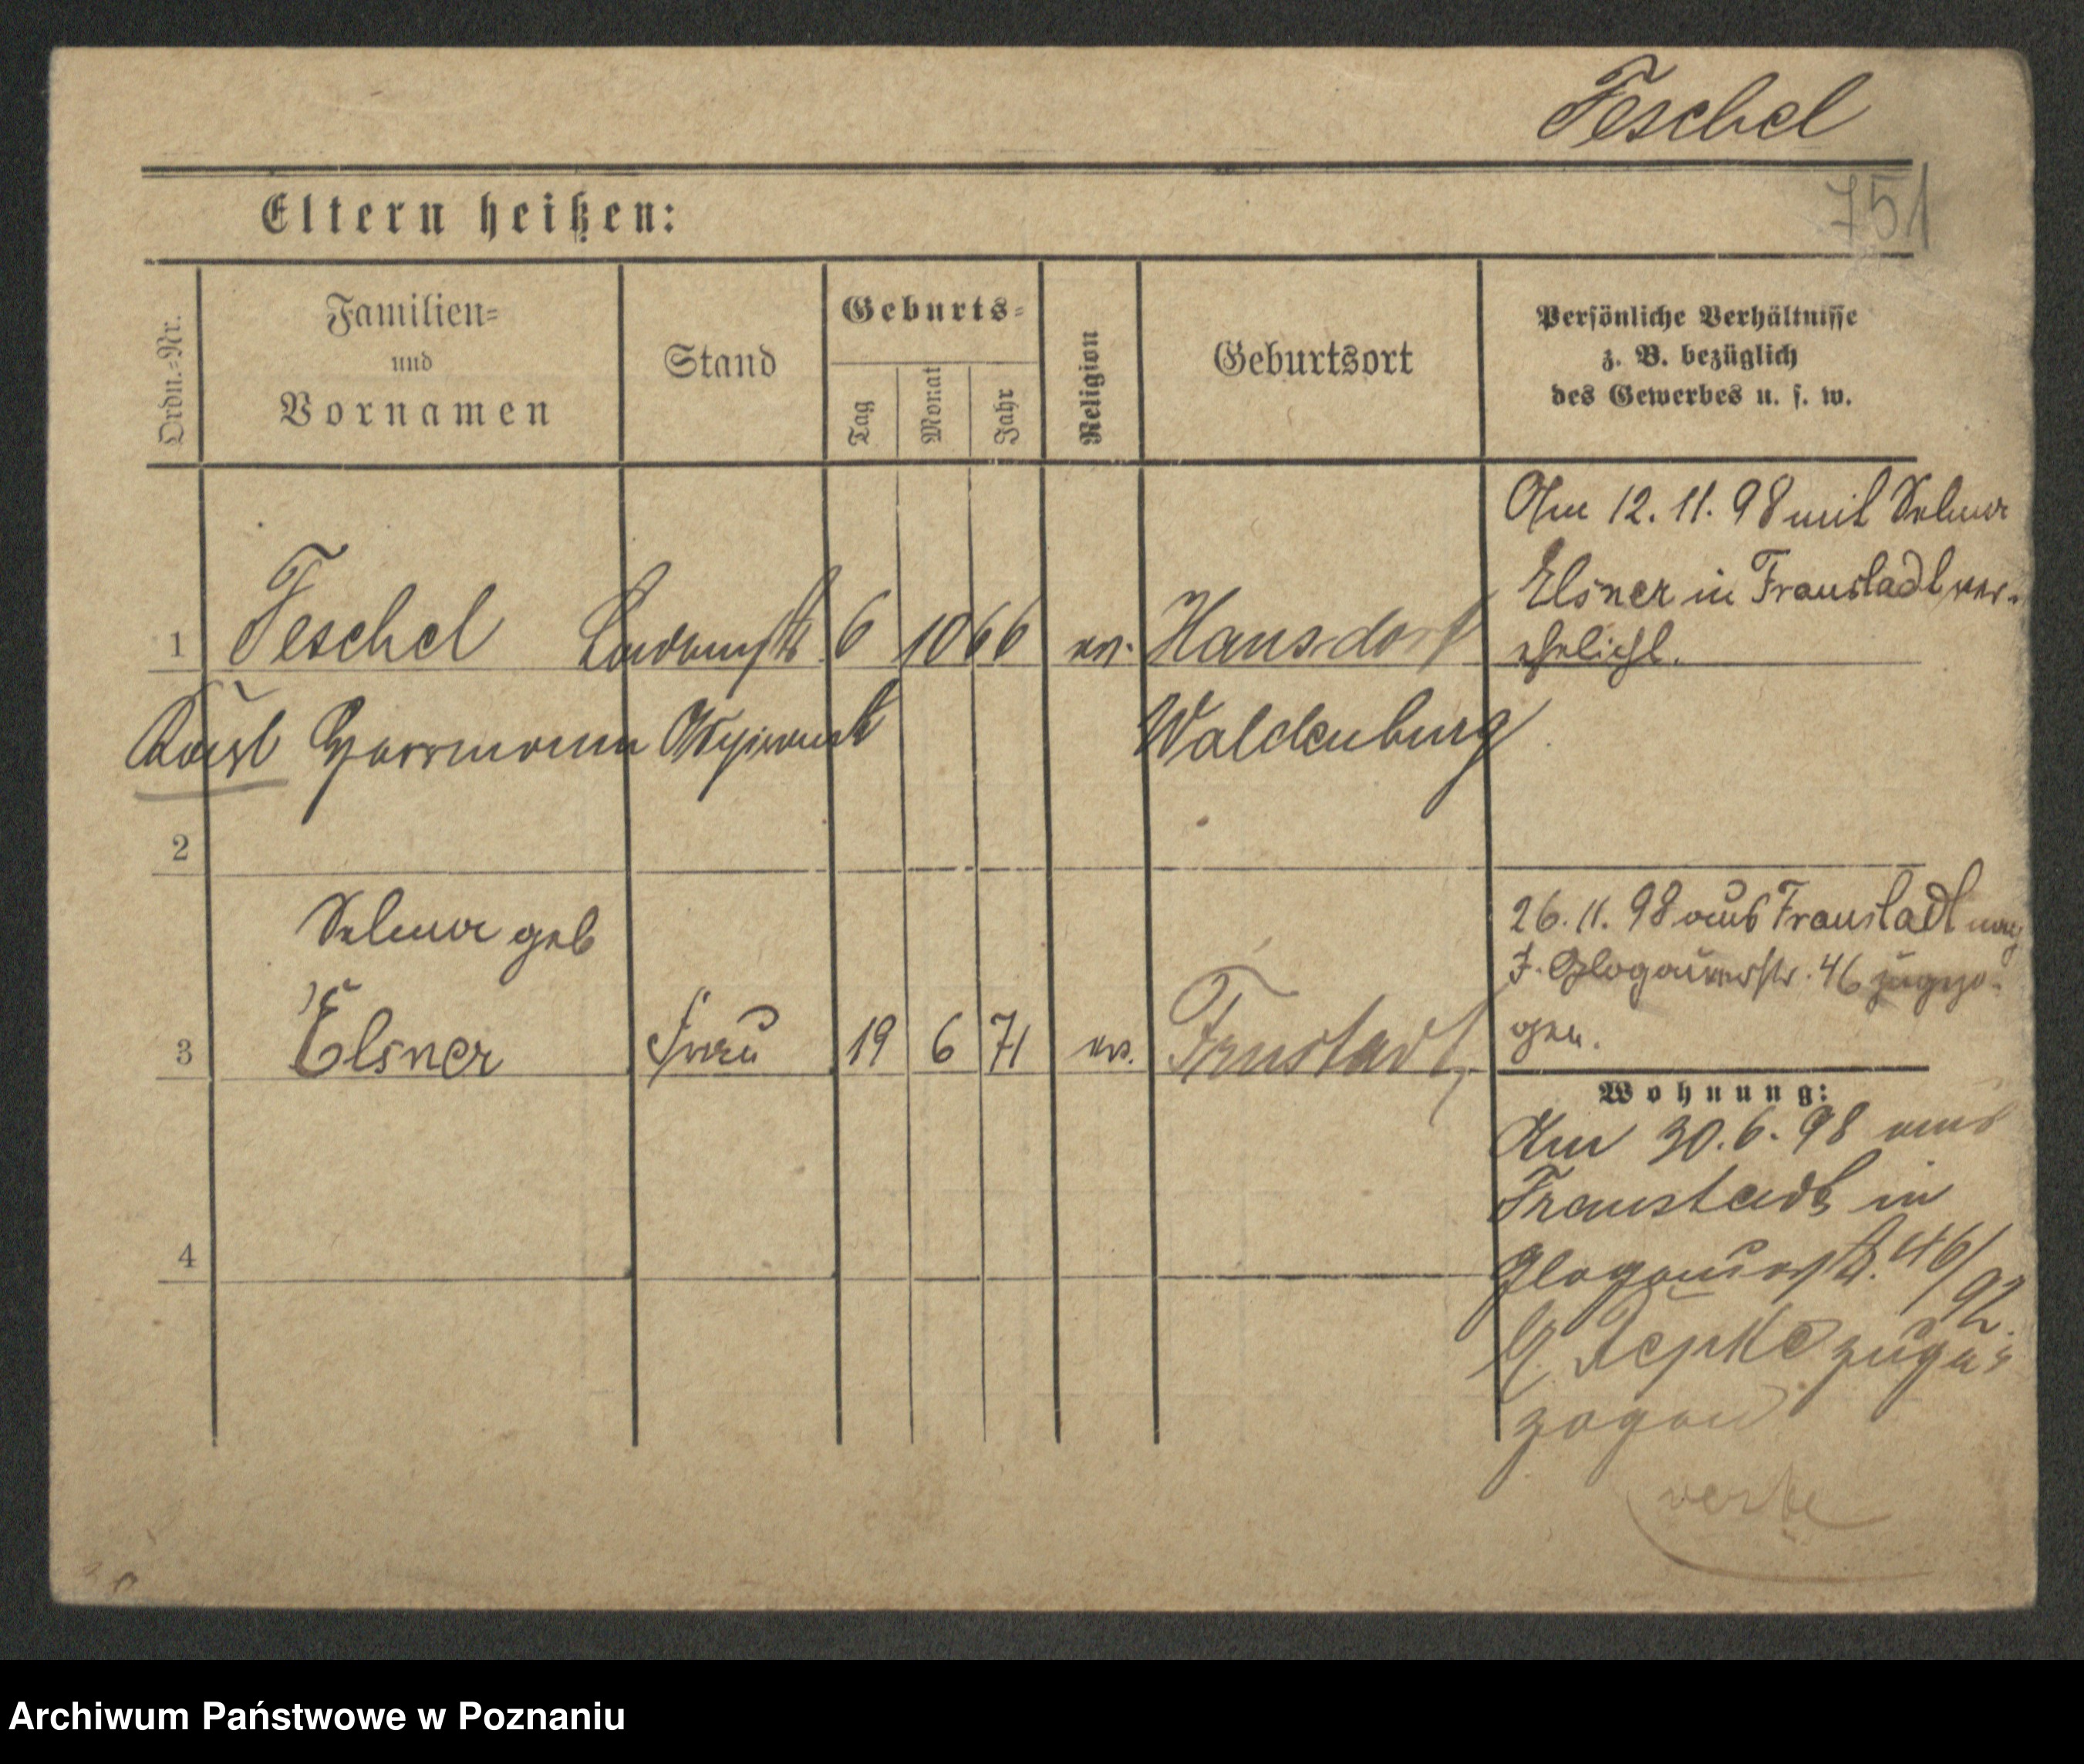 Teschel
751
Eltern heißen:
Ordn.-Nr.
Familien-
und
Vornamen
Stand
Geburts-
Tag
Monat
Jahr
Religion
Geburtsort
Persönliche Verhältnisse
z. B. bezüglich
des Gewerbes u. s. w.
Am 12. 11. 98 mit Selma
Elsner in Fraustadt ver-
ehelicht.
1
Teschel
6
10
66
ev.
Hansdorf
Karl Herrmann
Waldenburg
2
Selma geb
Elsner
3
Frau
19
6
71
ev.
Frustadt
26. 11. 98 aus Fraustadt nach
J. Glogauerstr. 46 zugezo-
gen.
Wohnung:
Am 30. 6. 98 aus
Fraustadt in
Glogauerstr. 46/
92.
b/ Depke zuge-
zogen
4
Archiwum Państwowe w Poznaniu